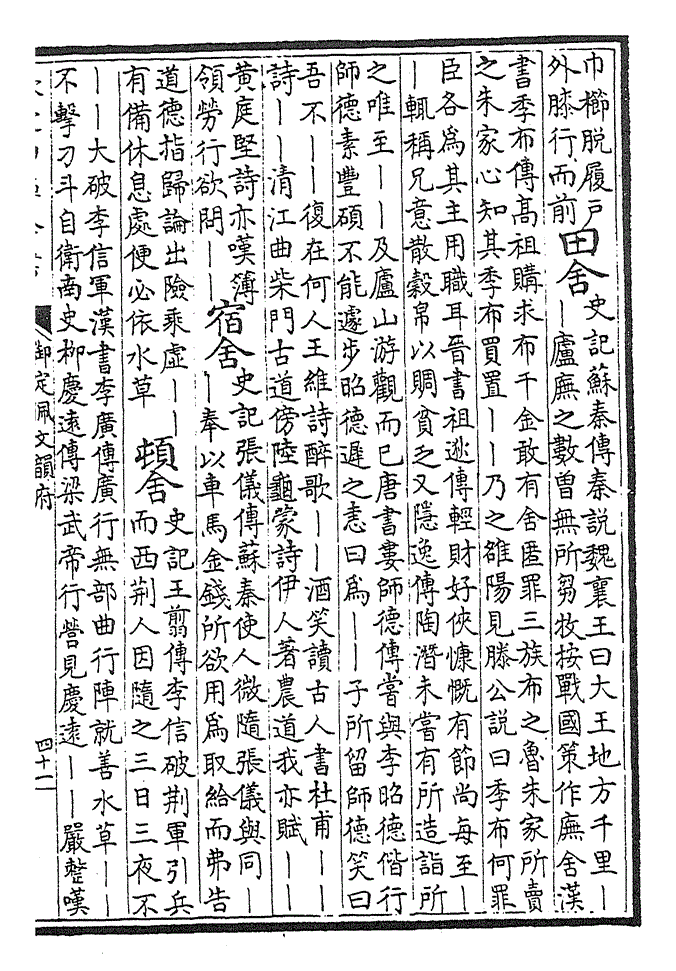 巾櫛脱履戸
外膝行而前
田舍
史記蘇秦傳秦説魏襄王曰大王地方千里丨
丨廬廡之數曽無所芻牧按戰國策作廡舍漢
書季布傳髙祖購求布千金敢有舍匿罪三族布之魯朱家所賣
之朱家心知其季布買置丨丨乃之雒陽見滕公説曰季布何罪
臣各為其主用職耳晉書祖逖傳輕財好俠慷慨有節尚每至丨
丨輒稱兄意散穀帛以賙貧乏又隱逸傳陶潛未嘗有所造詣所
之唯至丨丨及廬山游觀而已唐書婁師德傳嘗與李昭德偕行
師德素豐碩不能遽步昭德遲之恚曰為丨丨子所留師德笑曰
吾不丨丨復在何人王維詩醉歌丨丨酒笑讀古人書杜甫丨丨
詩丨丨清江曲柴門古道傍陸龜蒙詩伊人著農道我亦賦丨丨
黄庭堅詩亦嘆簿
領勞行欲問丨丨
宿舍
史記張儀傳蘇秦使人微隨張儀與同丨
丨奉以車馬金錢所欲用為取給而弗告
道德指歸論出險乘虛丨丨
有備休息處便必依水草
頓舍
史記王翦傳李信破荆軍引兵
而西荆人因隨之三日三夜不
丨丨大破李信軍漢書李廣傳廣行無部曲行陣就善水草丨丨
不擊刁斗自衛南史栁慶逺傳梁武帝行營見慶逺丨丨嚴整嘆
御定佩文韻府
四十二